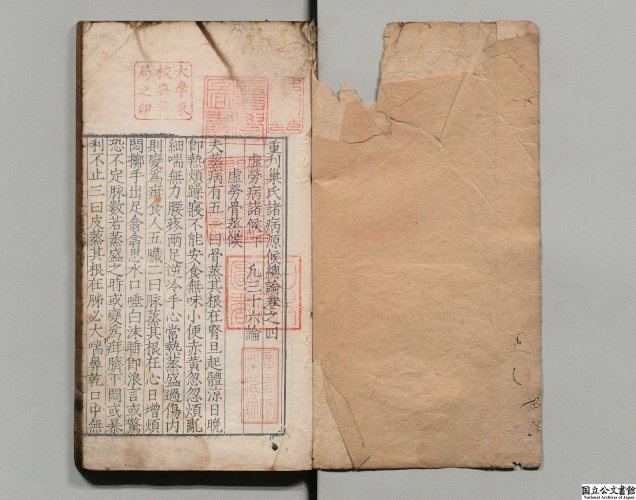 重刊巢氏諸病源候總論卷之四
虛勞病諸候下 凡三十六論
虛勞骨蒸候
夫蒸病有五一曰骨蒸其根在腎旦起體涼日晚
即熱煩躁寢不能安食無味小便赤黃忽忽煩亂
細喘無力腰疼兩足逆冷手心常熱蒸盛過傷內
則變為疳食人五臟二曰脉蒸其根在心日增煩
悶擲手出足翕翕思水口唾白沫睡即浪言或驚
恐不定脉數若蒸盛之時或變為疳臍下悶或暴
利不止三曰皮蒸其根在肺必大喘鼻乾口中無
大學東
校典
局之印
国立公文書館
National Archives of Japan